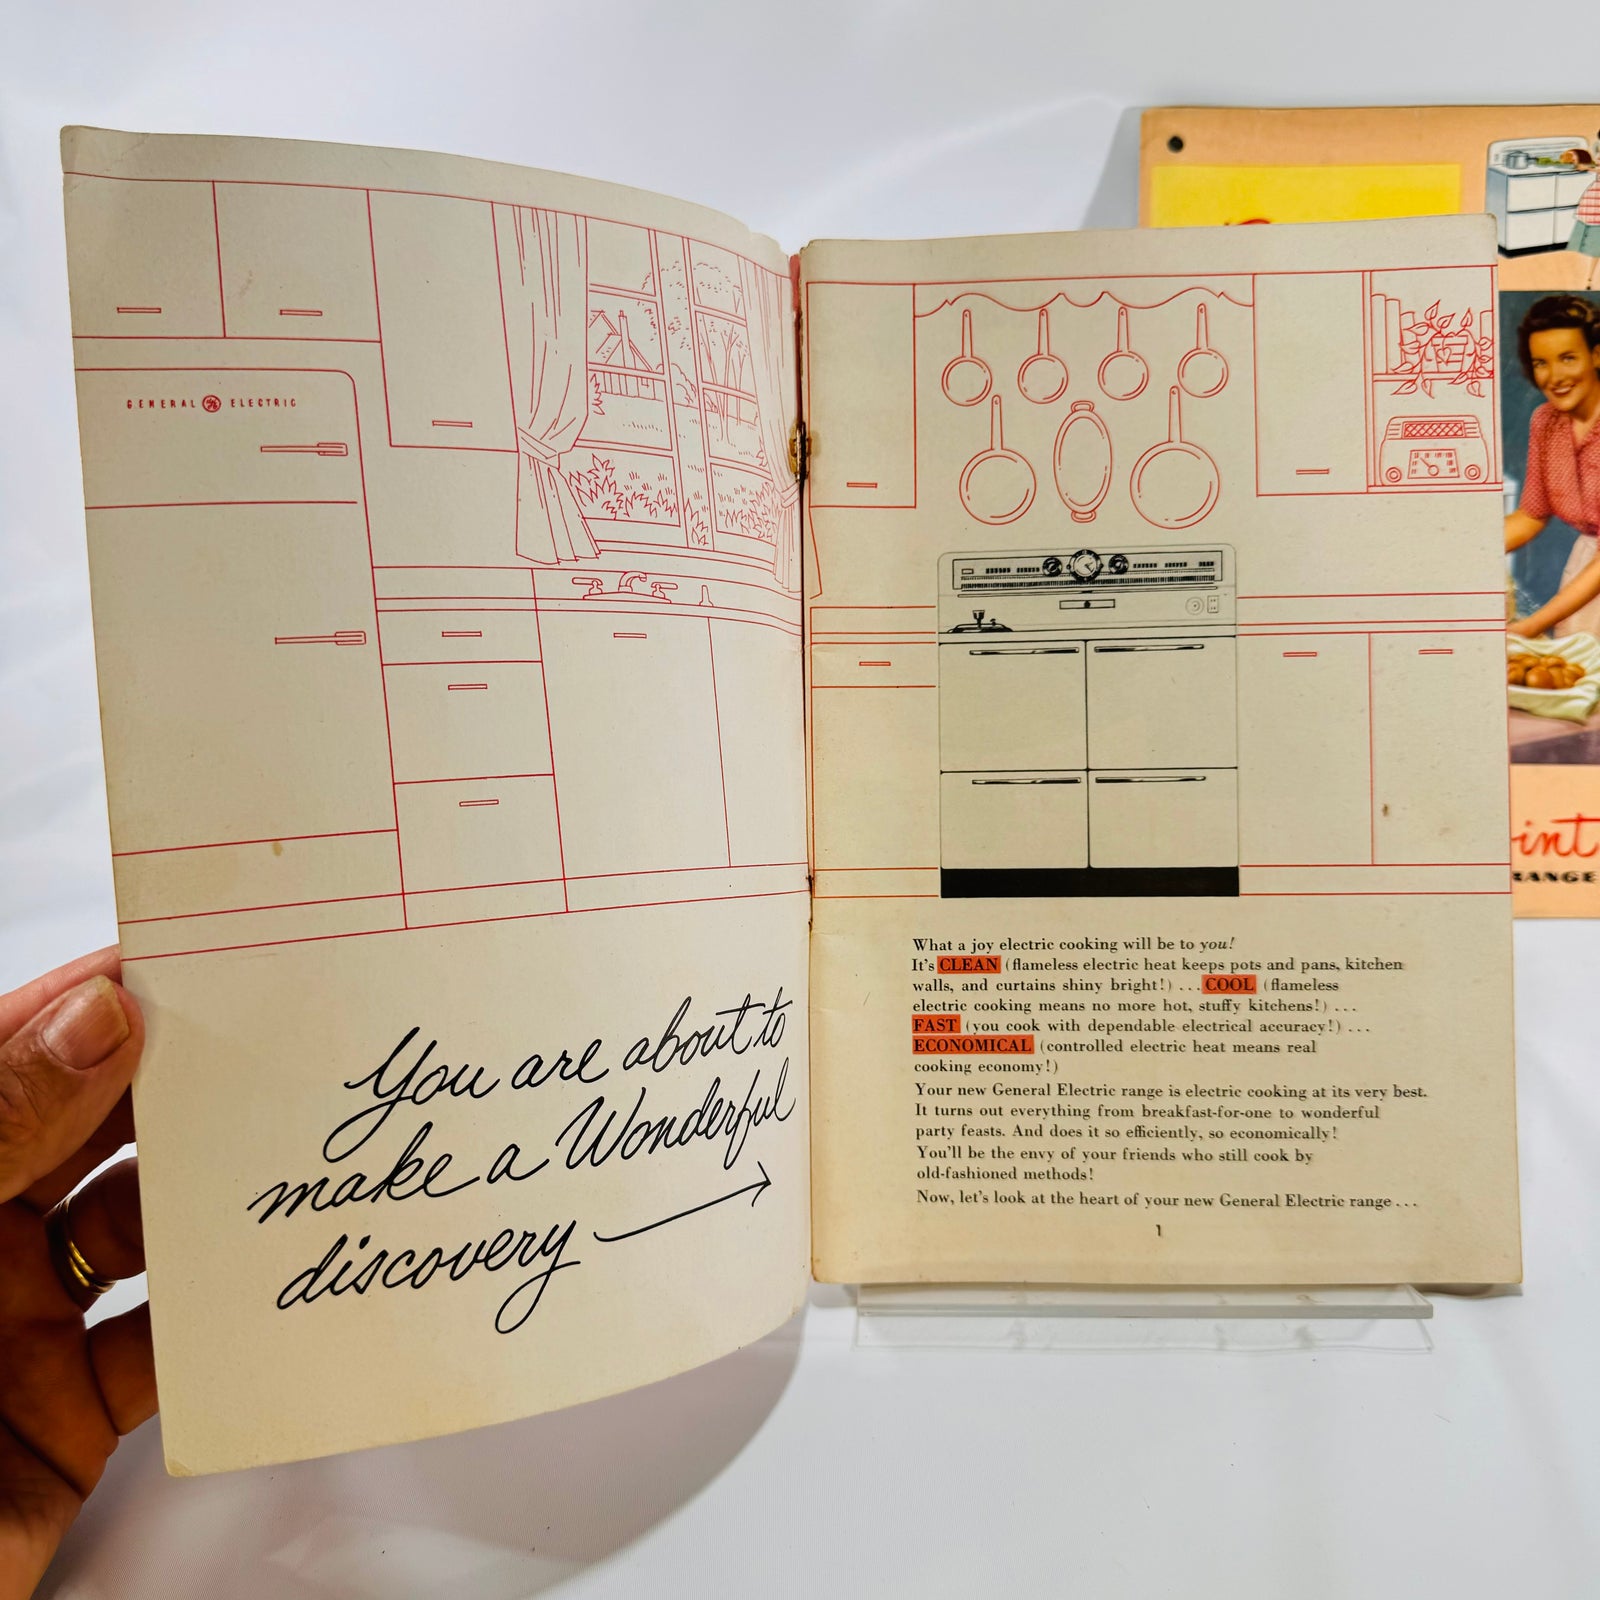 GENERAL GE ELECTRIC
You are about to
make a Wonderful
discovery
What a joy electric cooking will be to you!
It's CLEAN (flameless electric heat keeps pots and pans, kitchen
walls, and curtains shiny bright!) ... COOL (flameless
electric cooking means no more hot, stuffy kitchens!) ...
FAST (you cook with dependable electrical accuracy!) ...
ECONOMICAL (controlled electric heat means real
cooking economy!)
Your new General Electric range is electric cooking at its very best.
It turns out everything from breakfast-for-one to wonderful
party feasts. And does it so efficiently, so economically!
You'll be the envy of your friends who still cook by
old-fashioned methods!
Now, let's look at the heart of your new General Electric range ...
1
int
RANGE